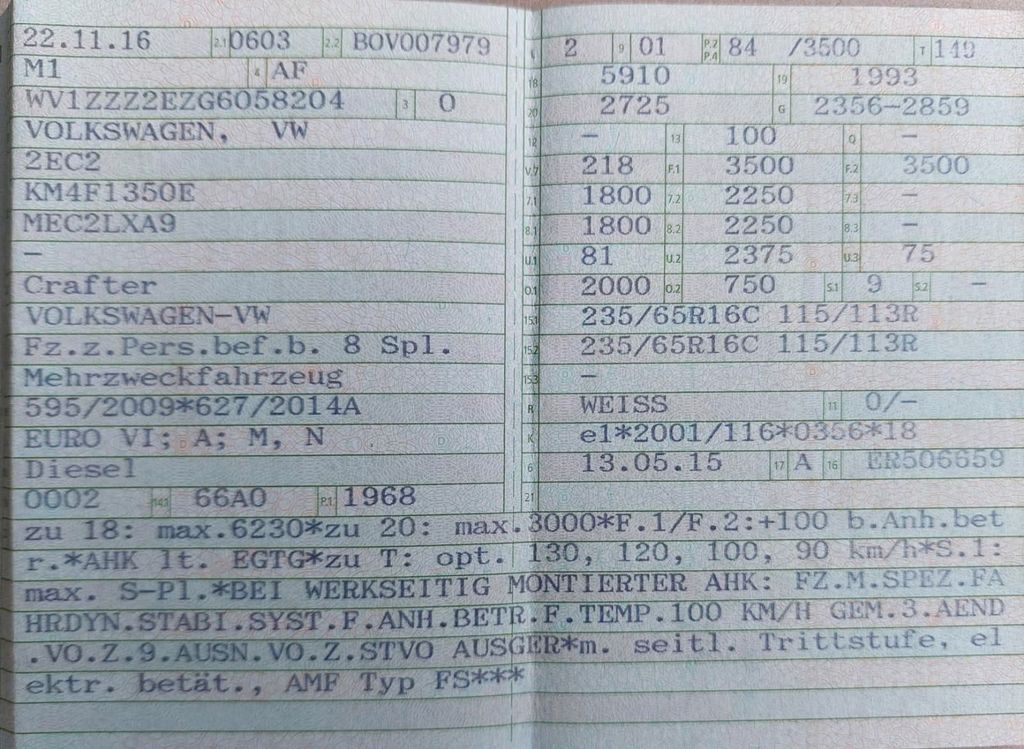 22.11.16 2.1 0603 2.2 BOV007979
M1 4 AF
WV1ZZZ2EZG6058204 3 0
VOLKSWAGEN, VW
2EC2
KM4F1350E
MEC2LXA9
–
Crafter
VOLKSWAGEN-VW
Fz.z.Pers.bef.b. 8 Spl.
Mehrzweckfahrzeug
595/2009*627/2014A
EURO VI; A; M, N
Diesel
0002 14.1 66A0 P.1 1968
L 2 9 01 P.2 P.4 84 /3500 T 149
18 5910 19 1993
20 2725 G 2356-2859
12 – 13 100 Q –
V.7 218 F.1 3500 F.2 3500
7.1 1800 7.2 2250 7.3 –
8.1 1800 8.2 2250 8.3 –
U.1 81 U.2 2375 U.3 75
O.1 2000 O.2 750 S.1 9 S.2 –
15.1 235/65R16C 115/113R
15.2 235/65R16C 115/113R
15.3 –
R WEISS 11 0/–
K e1*2001/116*0356*18
6 13.05.15 17 A 16 ER506659
21
zu 18: max.6230*zu 20: max.3000*F.1/F.2:+100 b.Anh.bet
r.*AHK lt. EGTG*zu T: opt. 130, 120, 100, 90 km/h*S.1:
max. S-Pl.*BEI WERKSEITIG MONTIERTER AHK: FZ.M.SPEZ.FA
HRDYN.STABI.SYST.F.ANH.BETR.F.TEMP.100 KM/H GEM.3.AEND
.VO.Z.9.AUSN.VO.Z.STVO AUSGER*m. seitl. Trittstufe, el
ektr. betät., AMF Typ FS***